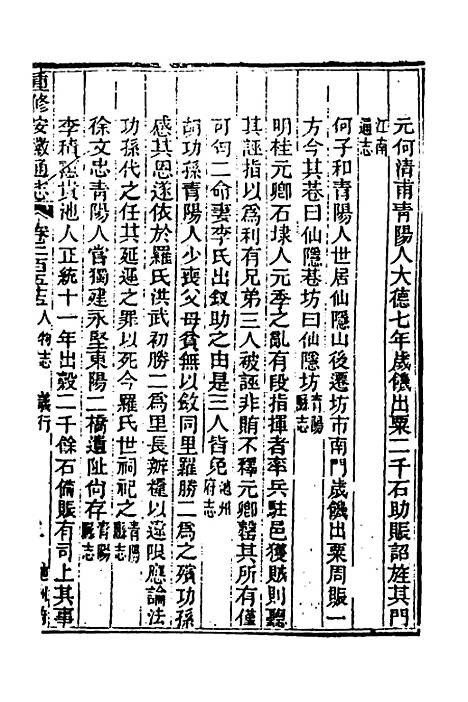 元何清甫靑陽人大德七年歲饑出粟二千石助賑詔旌其門
江南
通志
何子和靑陽人世居仙隱山後遷坊市南門歲饑出粟周賑一
方今其巷曰仙隱巷坊曰仙隱坊靑陽縣志
明桂元卿石埭人元季之亂有段指揮者率兵駐邑獲賊則聽
其誣指以爲利有兄弟三人被誣非賄不釋元卿罄其所有僅
可句二命妻李氏出釵助之由是三人皆免池州府志
胡功孫靑陽人少喪父母貧無以斂同里羅勝二爲之殯功孫
感其恩遂依於羅氏洪武初勝二爲里長辦糧以違限應論法
功孫代之任其延遲之罪以死今羅氏世祠祀之靑陽縣志
徐文忠靑陽人嘗獨建永堅東陽二橋遺址尙存靑陽縣志
李積 貴池人正統十一年出穀二千餘石備賑有司上其事
重修安徽通志 卷二百四十五 人物志 義行